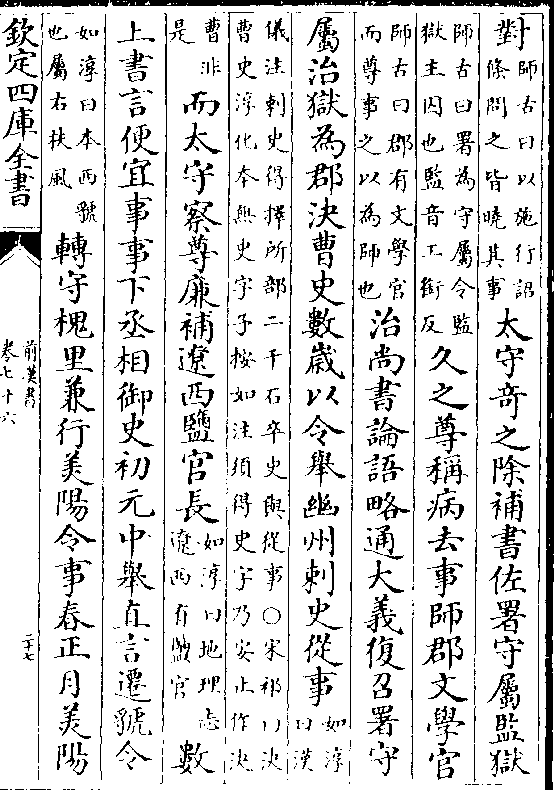 對師古曰以施行詔條問之皆曉其事太守奇之除補書佐署守屬監獄
師古曰署為守屬令監獄主囚也監音工銜反久之尊稱病去事師郡文學官
師古曰郡有文學官而尊事之以為師也治尚書論語略通大義復召署守
屬治獄為郡決曹史數歲以令舉幽州刺史從事如淳曰漢
儀注刺史得擇所部二千石卒史與從事○宋祁曰決曹史淳化本無史字子按如注須得史字乃安止作決
曹非是而太守察尊廉補遼西鹽官長如淳曰地理志遼西有鹽官數
上書言便宜事事下丞相御史初元中舉直言遷虢令
如淳曰本西虢也屬右扶風轉守槐里兼行美陽令事春正月美陽
欽定四庫全書
前漢書
卷七十六
二十七